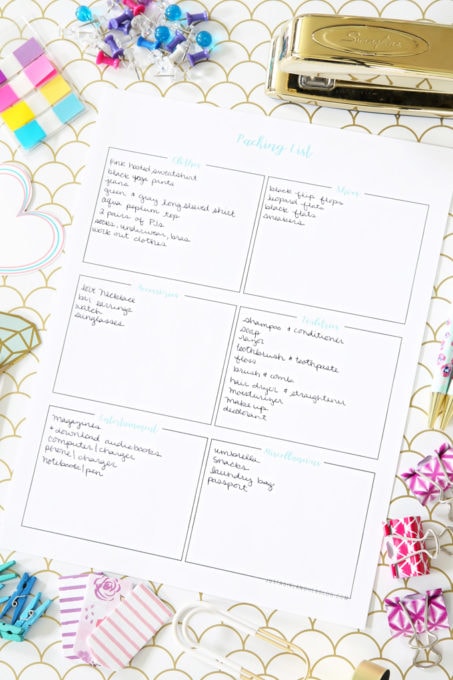 Swingline
Packing List
Clothes
pink hooded sweatshirt
black yoga pants
jeans
green & gray long sleeved shirt
aqua peplum top
2 pairs of PJs
socks, underwear, bras
work out clothes
Shoes
black flip flops
leopard flats
black flats
sneakers
Accessories
bar necklace
earrings
watch
sunglasses
Toiletries
shampoo & conditioner
soap
razor
toothbrush & toothpaste
floss
brush & comb
hair dryer & straightener
moisturizer
makeup
deodorant
Entertainment
magazines
+ download audiobooks
computer/charger
phone/charger
notebook/pen
Miscellaneous
umbrella
snacks
laundry bag
passport